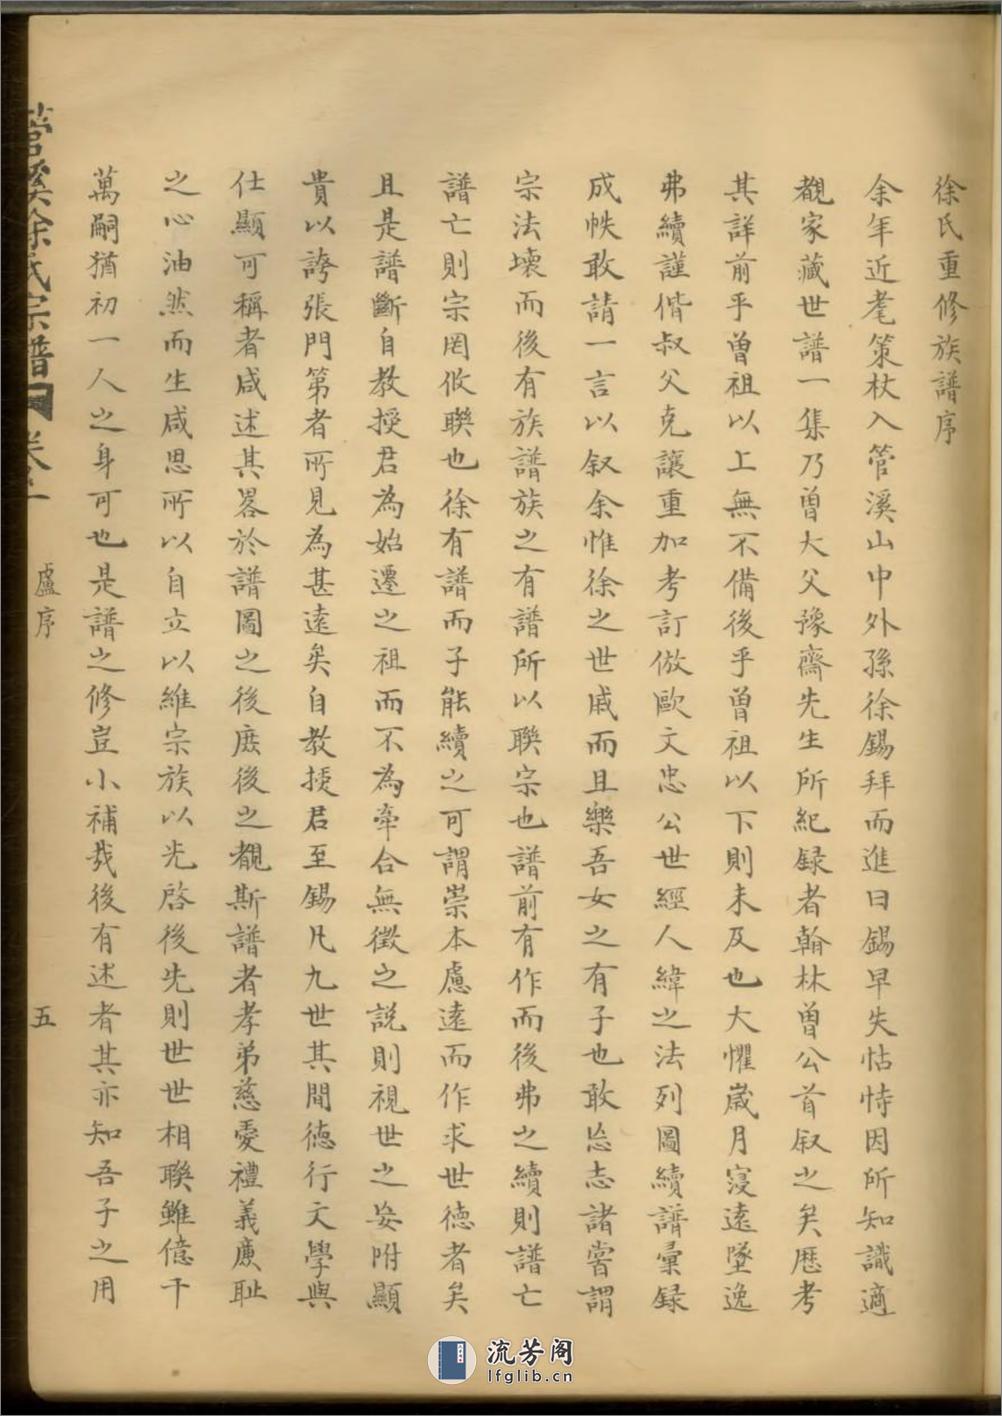 徐氏重修族譜序
余年近耄策杖入管溪山中外孫徐錫拜而進曰錫早失怙恃因所知識適
覩家藏世譜一集乃曾大父豫齋先生所紀録者翰林曾公首叙之矣歷考
其詳前乎曾祖以上無不備後乎曾祖以下則未及也大懼嵗月寖遠墜逸
弗續謹偕叔父克讓重加考訂倣歐文忠公世經人緯之法列圖續譜彙録
成帙敢請一言以叙余惟徐之世戚而且樂吾女之有子也敢忘志諸嘗謂
宗法壞而後有族譜族之有譜所以聯宗也譜前有作而後弗之續則譜亡
譜亡則宗罔攸聯也徐有譜而子能續之可謂崇本慮遠而作求世徳者矣
且是譜斷自教授君為始遷之祖而不為牽合無徵之説則視世之妄附顯
貴以誇張門第者所見為甚遠矣自教授君至錫凡九世其間徳行文學與
仕顯可稱者咸述其畧於譜圖之後庶後之覩斯譜者孝弟慈愛禮義廉耻
之心油然而生咸思所以自立以維宗族以光啓後先則世世相聯雖億千
萬嗣猶初一人之身可也是譜之修豈小補哉後有述者其亦知吾子之用
管溪徐氏宗譜
盧序
五
流芳阁
lfglib.cn